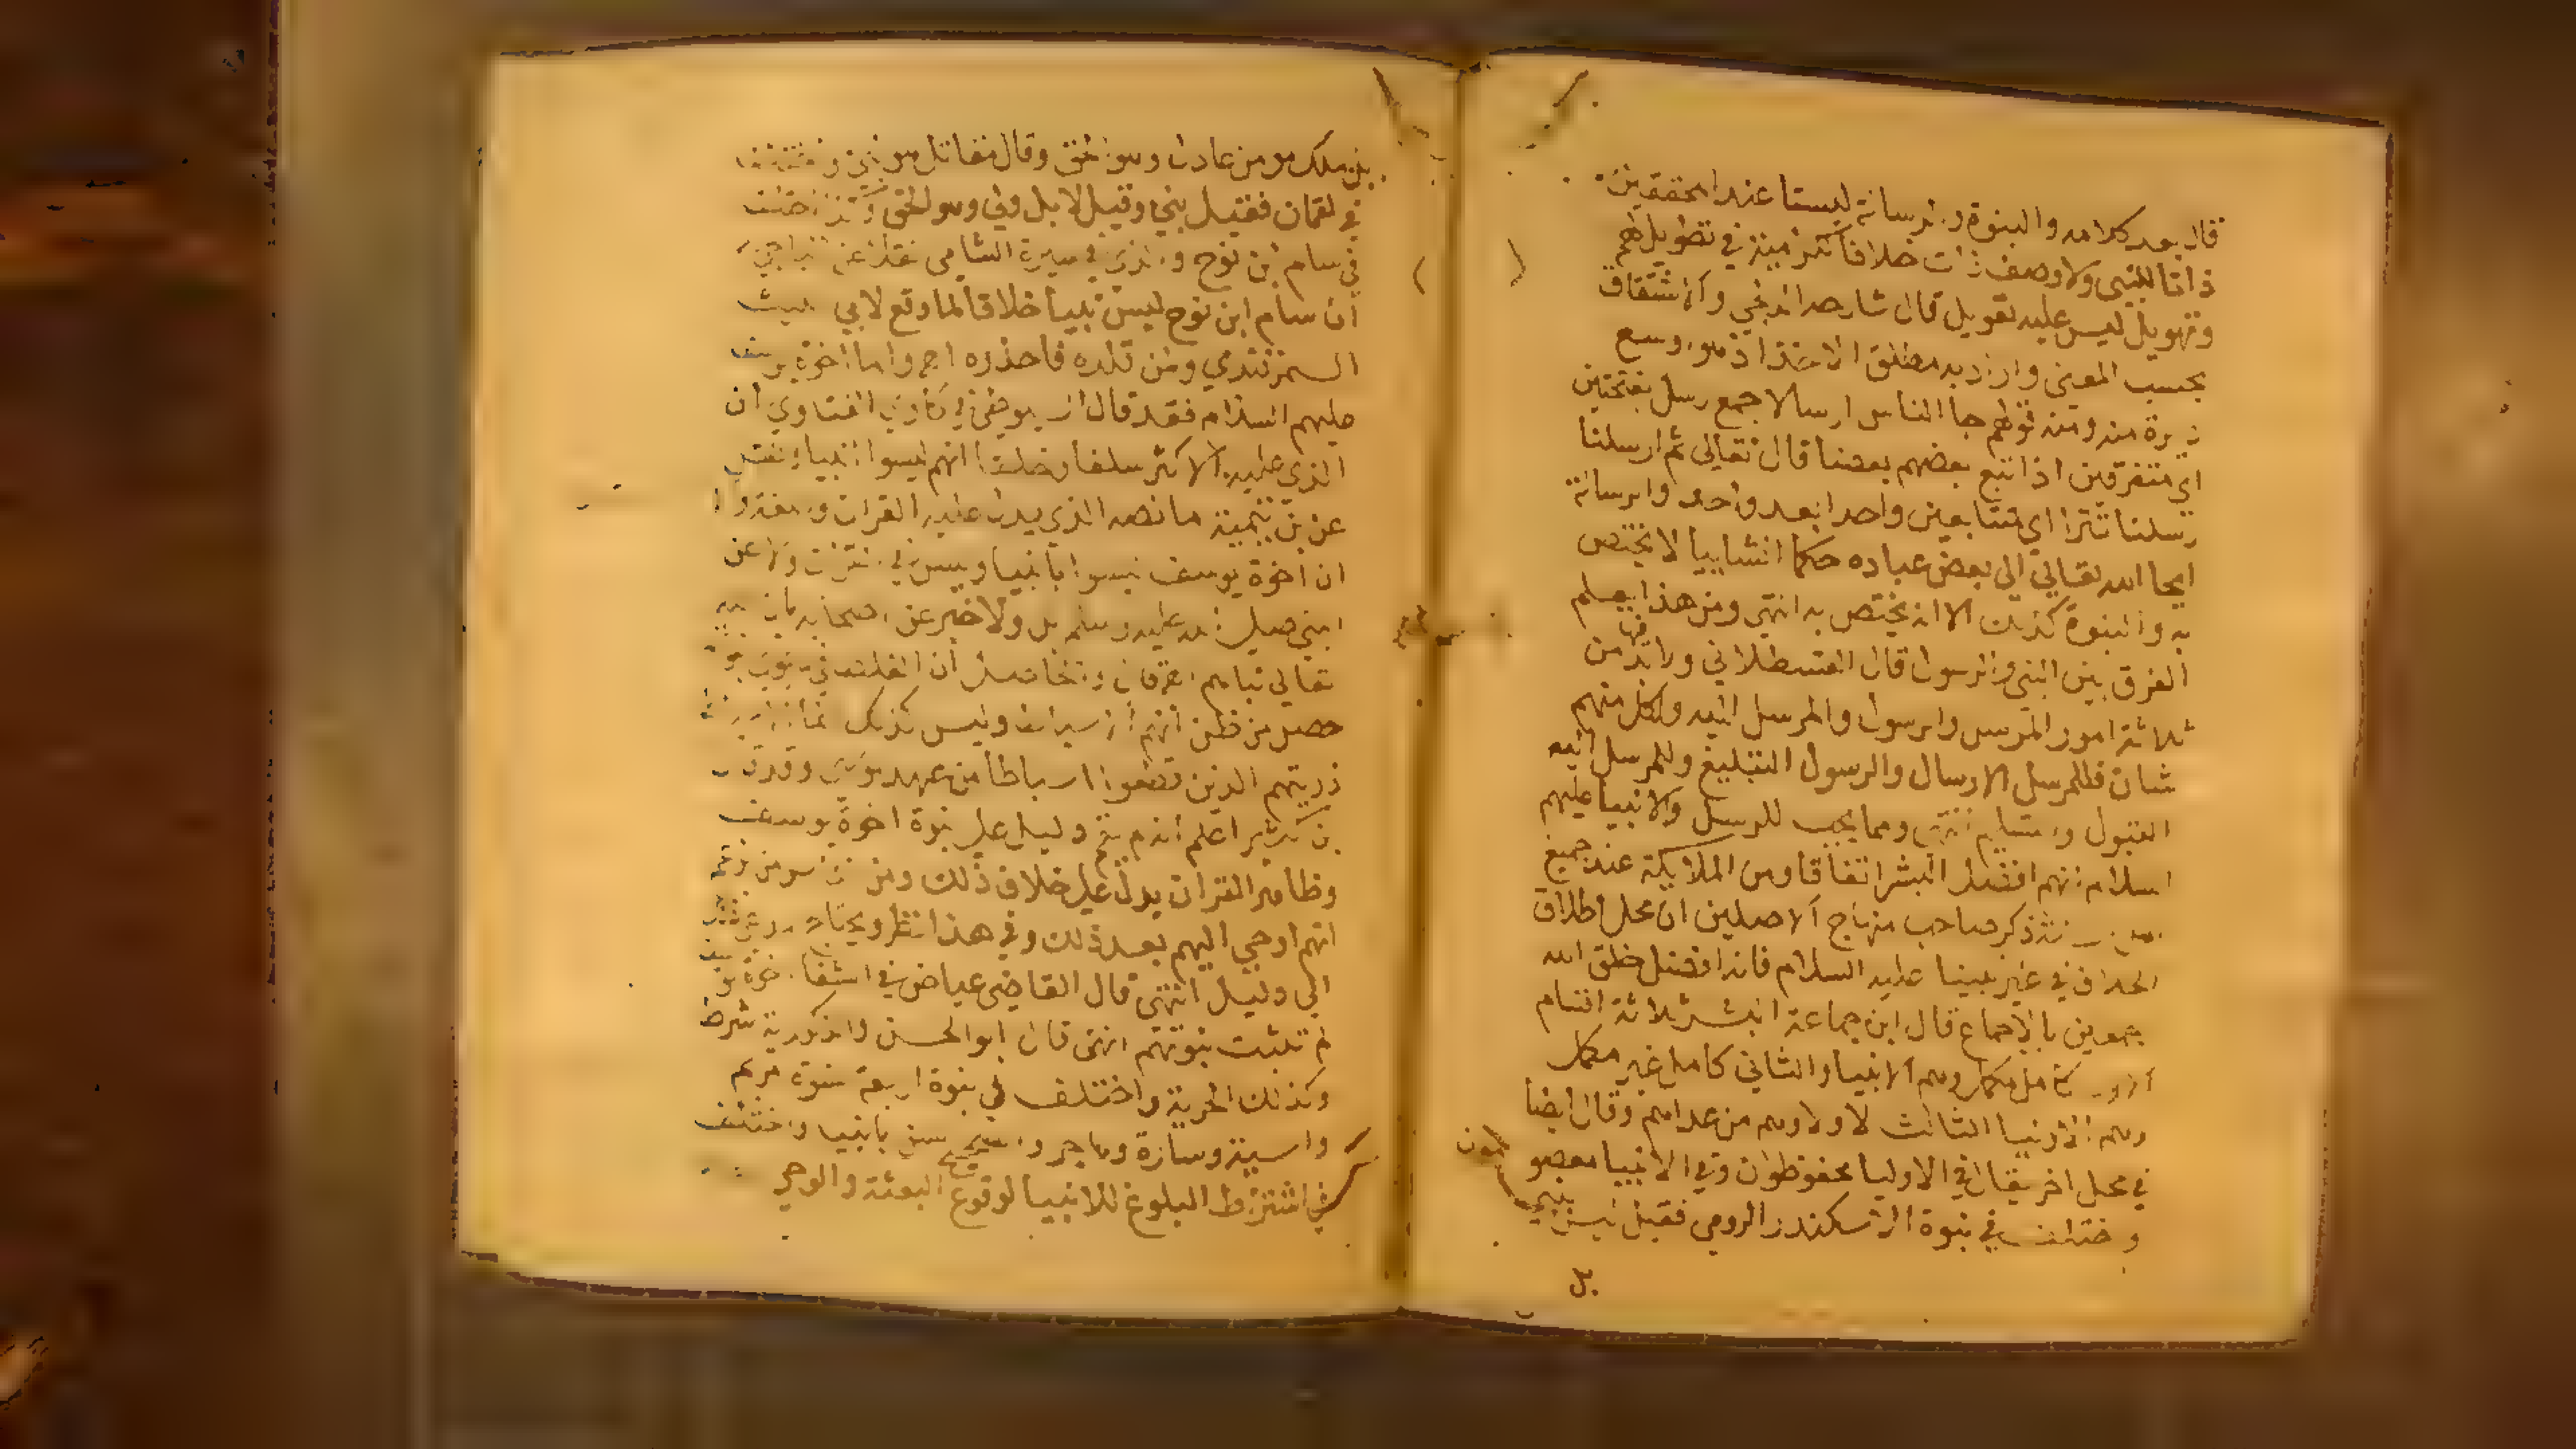 قال بعد كلامه والنبوة والرسالة ليستا عند المحققين
ذاتا للنبي ولا وصف ذات خلافا للكرامية في تطويل لهم
وتهويل ليس عليه تعويل قال شارحه الدلجي والاشتقاق
بحسب المعنى وان اريد به مطلق الاخذ اذ هو اوسع
دايرة منه ومنه قولهم جا الناس ارسالا جمع رسل بفتحتين
اي متفرقين اذا تبع بعضهم بعضا قال تعالى ثم ارسلنا
رسلنا تترا اي متتابعين واحدا بعد واحد والرسالة
ايحا الله تعالي الي بعض عباده حكما انشاييا لا يختص
به والنبوة كذلك الا انه يختص به انتهى ومن هذا يعلم
الفرق بين النبي والرسول قال القسطلاني ولابد من
ثلاثة امور المرسل والرسول والمرسل اليه ولكل منهم
شان فللمرسل الارسال والرسول التبليغ وللمرسل اليه
القبول والتسليم انتهى ومما يجب للرسل والانبيا عليهم
السلام انهم افضل البشر اتفاقا ومن الملايكة عند جميع
ذكر صاحب منهاج الاصلين ان محل اطلاق
الخلاف في غير نبينا عليه السلام فانه افضل خلق الله
اجمعين بالاجماع قال ابن جماعة البشر ثلاثة اقسام
الاول كامل مكمل وهم الانبيا والثاني كامل غير مكمل
وهم الاوليا الثالث لا ولا وهم من عداهم وقال ايضا
في محل اخر يقال في الاوليا محفوظون وفي الانبيا معصومون
واختلف في نبوة الاسكندر الرومي فقيل ليس بنبي
بل
بل ملك مومن عادل وهو الحق وقال مقاتل هو نبي واختلف
في لقمان فقيل نبي وقيل لا بل ولي وهو الحق وكذا اختلف
في سام ابن نوح والذي في سيرة الشامي نقلا عن
ان سام ابن نوح ليس نبيا خلافا لما وقع لابي الليث
السمرقندي ومن قلده فاحذره اه واما اخوة يوسف
عليهم السلام فقد قال السيوطي في الفتاوي ان
الذي عليه الاكثر سلفا وخلفا انهم ليسوا انبيا ونقل
عن بن تيمية ما نصه الذي يدل عليه القران
ان اخوة يوسف ليسوا بانبيا وليس في القران ولا عن
النبي صلى الله عليه وسلم بل ولا خبر عن اصحابه بان الله
تعالي نباهم والحاصل ان الغلط في نبوتهم
حصل من ظن انهم الاسباط وليس كذلك انما
ذريتهم الذين قطعوا اسباطا من عهد موسى وقد قال
بن كثير اعلم انه لم يقم دليل على نبوة اخوة يوسف
وظاهر القران يدل على خلاف ذلك ومن الناس من زعم
انهم اوحي اليهم بعد ذلك وفي هذا نظر ويحتاج مدعي ذلك
الي دليل انتهى قال القاضي عياض في الشفا اخوة يوسف
لم تثبت نبوتهم انتهى قال ابو الحسن والذكورية شرط
وكذلك الحرية واختلف في نبوة اربعة نسوة مريم
واسية وسارة وهاجر والصحيح لسن بانبيا واختلف
في اشتراط البلوغ للانبيا لوقوع البعثة والوحي